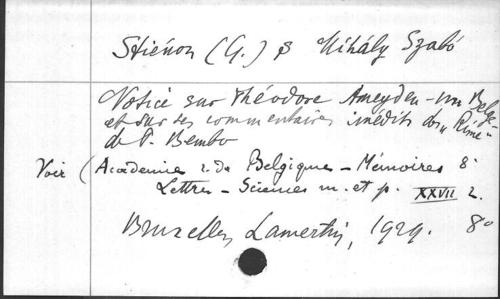 Stiénon (G.) & Mihály Szabó
Notice sur Théodore Ameyden - un Belge
et sur ses commentaires inédits des "Rime"
de P. Bembo
Voir (Academie r. de Belgique - Mémoires 8°
Lettres - Sciences m. et p. XXVII 2.
Bruxelles, Lamertin, 1929. 8°